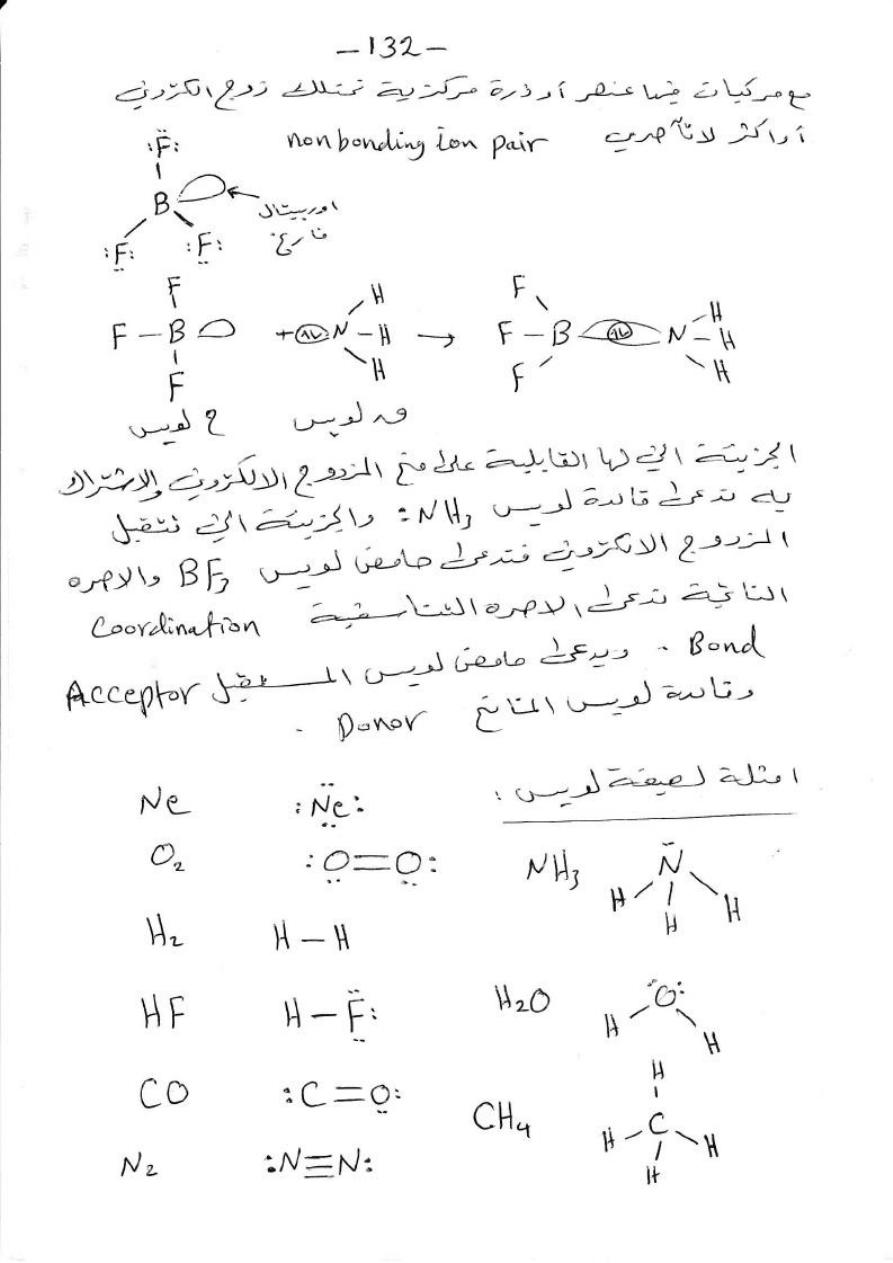 -132-
مع مركبات فيها عنصر أو ذرة مركزية تمتلك زوج الكتروني
أو اكثر لا تآصري nonbonding ion pair
:F:
B
اوربيتال
فارغ
:F: :F:
F
F-B + N-H → F-B N-H
F
ق. لويس ح لويس
الجزيئة التي لها القابلية على منح المزدوج الالكتروني والاشتراك
به تدعى قاعدة لويس :NH₃ والجزيئة التي تتقبل
المزدوج الالكتروني فتدعى حامض لويس BF₃ والاصره
الناتجة تدعى الاصره التناسقية Coordination
Bond . ويدعى حامض لويس المستقبل Acceptor
وقاعدة لويس المانح Donor .
امثلة لصيغة لويس :
Ne :Ne:
O₂ :O=O: NH₃ N H H H
H₂ H-H
HF H-F: H₂O O: H H
CO :C=O: CH₄ H H-C-H H
N₂ :N≡N: